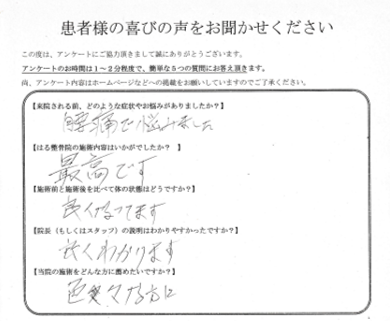 患者様の喜びの声をお聞かせください
この度は、アンケートにご協力頂きまして誠にありがとうございます。
アンケートのお時間は1～2分程度で、簡単な5つの質問にお答え頂きます。
尚、アンケート内容はホームページなどへの掲載をお願いしていますのでご了承ください。
【来院される前、どのような症状やお悩みがありましたか？】
腰痛で悩みました
【はる整骨院の施術内容はいかがでしたか？ 】
最高です
【施術前と施術後を比べて体の状態はどうですか？】
良くなってます
【院長（もしくはスタッフ）の説明はわかりやすかったですか？】
良くわかります
【当院の施術をどんな方に薦めたいですか？】
色々な方に